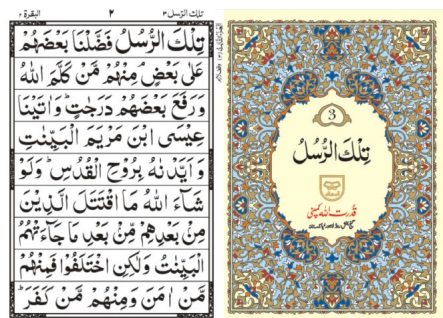 البقرة ٢
٢
تلك الرسل ٣
تِلۡكَ الرُّسُلُ فَضَّلۡنَا بَعۡضَهُمۡ
عَلٰى بَعۡضٍ‌ۘ مِنۡهُمۡ مَّنۡ كَلَّمَ اللّٰهُ
وَرَفَعَ بَعۡضَهُمۡ دَرَجٰتٍ‌ؕ وَاٰتَيۡنَا
عِيۡسَى ابۡنَ مَرۡيَمَ الۡبَيِّنٰتِ
وَاَيَّدۡنٰهُ بِرُوۡحِ الۡقُدُسِ‌ؕ وَلَوۡ
شَآءَ اللّٰهُ مَا اقۡتَتَلَ الَّذِيۡنَ
مِنۡۢ بَعۡدِهِمۡ مِّنۡۢ بَعۡدِ مَا جَآءَتۡهُمُ
الۡبَيِّنٰتُ وَلٰـكِنِ اخۡتَلَفُوۡا فَمِنۡهُمۡ
مَّنۡ اٰمَنَ وَمِنۡهُمۡ مَّنۡ كَفَرَ‌ؕ
3
تِلۡكَ الرُّسُلُ
قدرت اللہ کمپنی